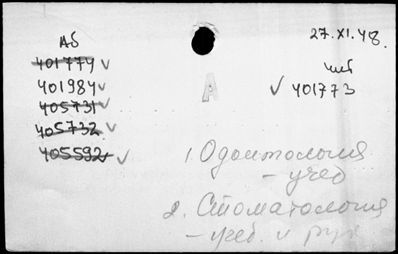 27.XI.48.
Аб
401774 ✓
401984 ✓
405731 ✓
405732 ✓
405592 ✓
А
чит
✓ 401773
1. Одонтология
– учеб
2. Стоматология
– учеб. и рук